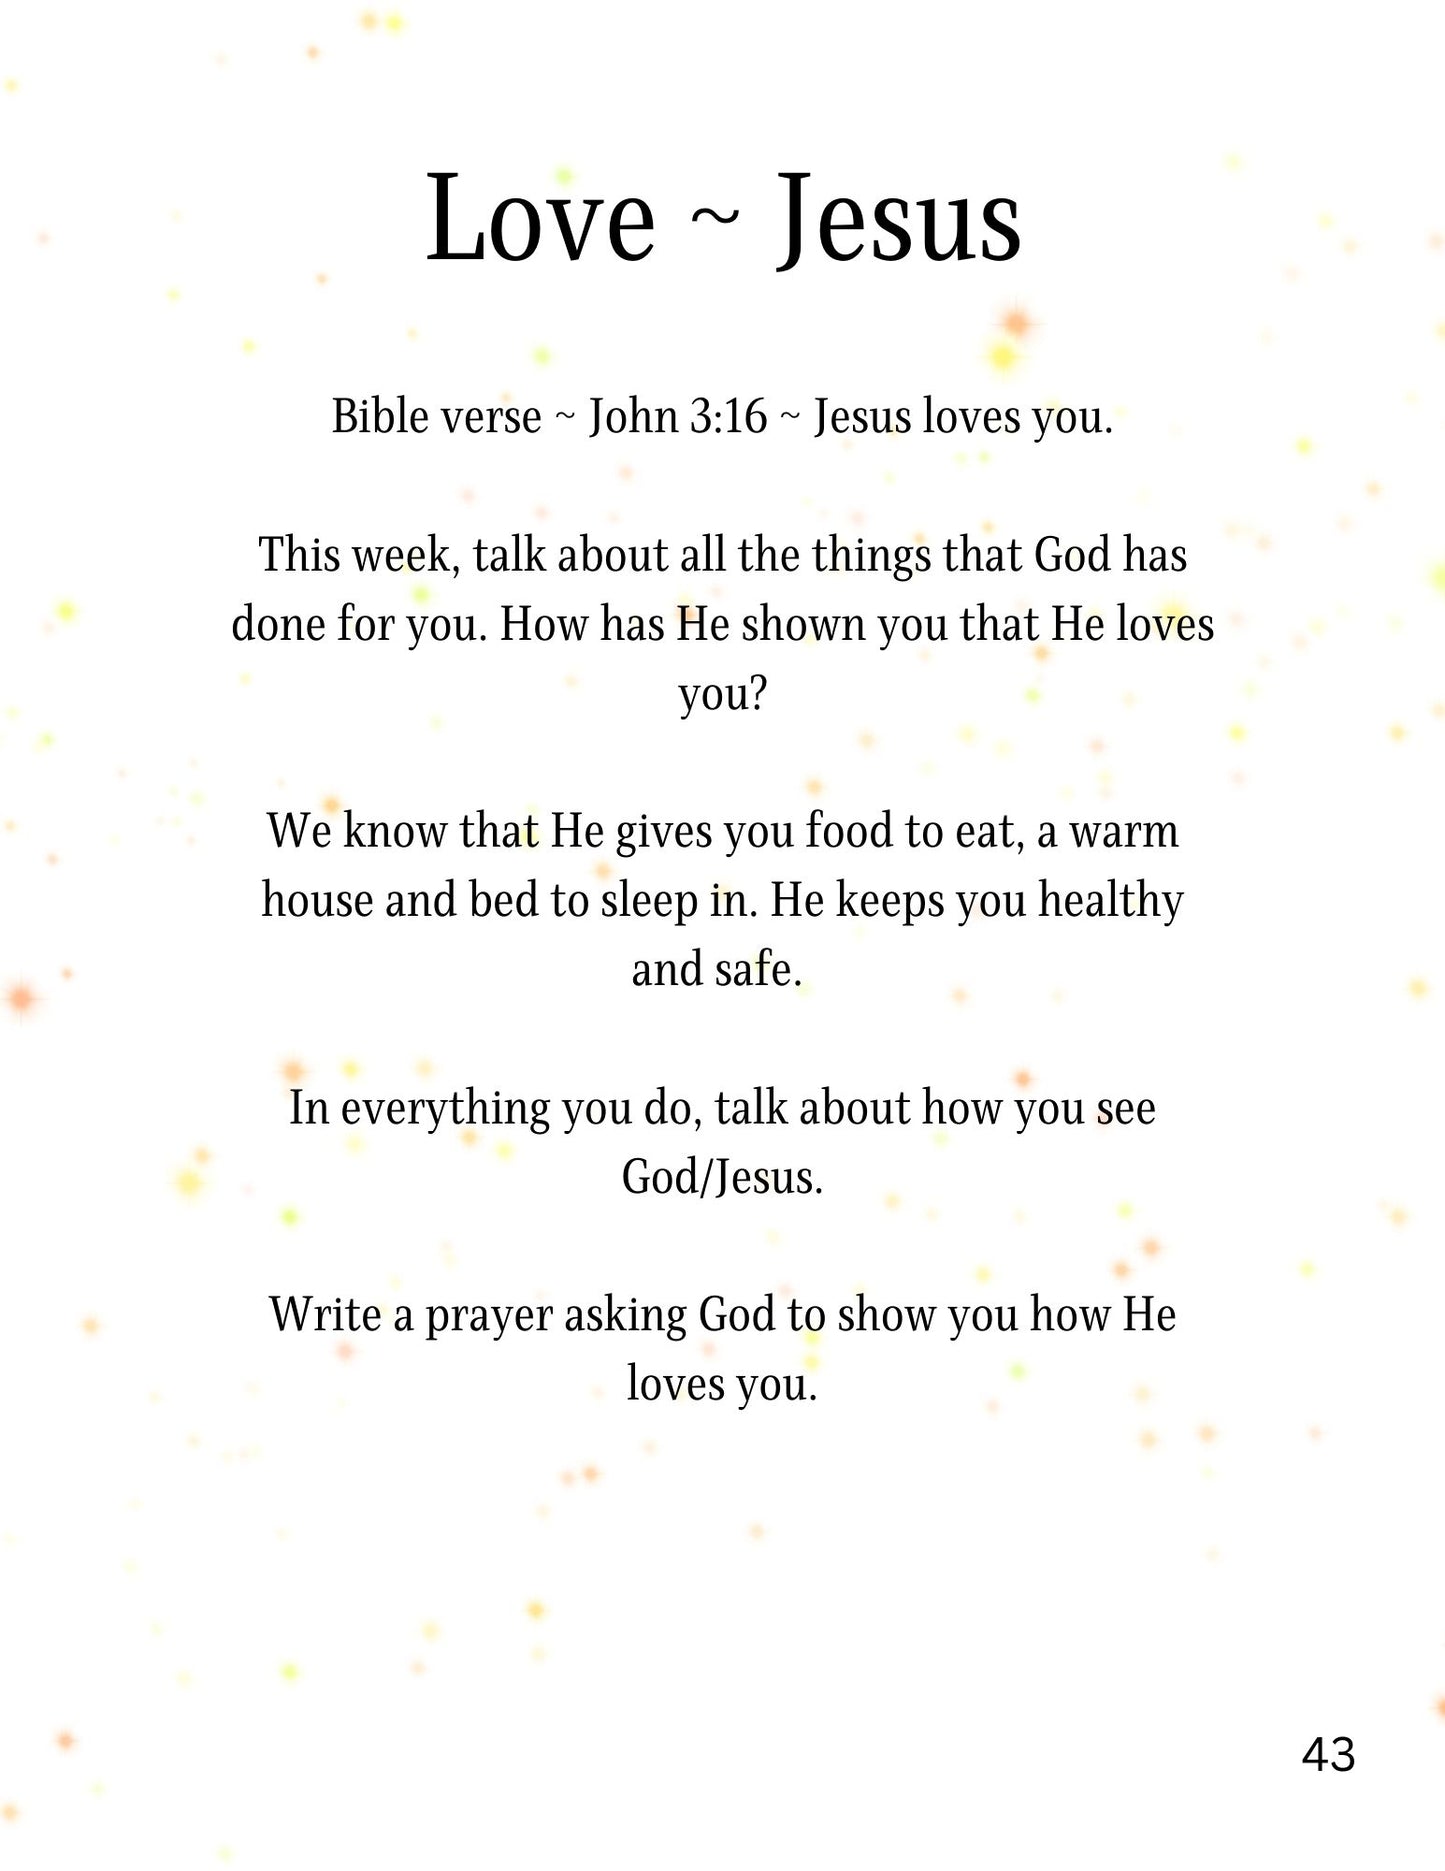 Love ~ Jesus
Bible verse ~ John 3:16 ~ Jesus loves you.
This week, talk about all the things that God has
done for you. How has He shown you that He loves
you?
We know that He gives you food to eat, a warm
house and bed to sleep in. He keeps you healthy
and safe.
In everything you do, talk about how you see
God/Jesus.
Write a prayer asking God to show you how He
loves you.
43